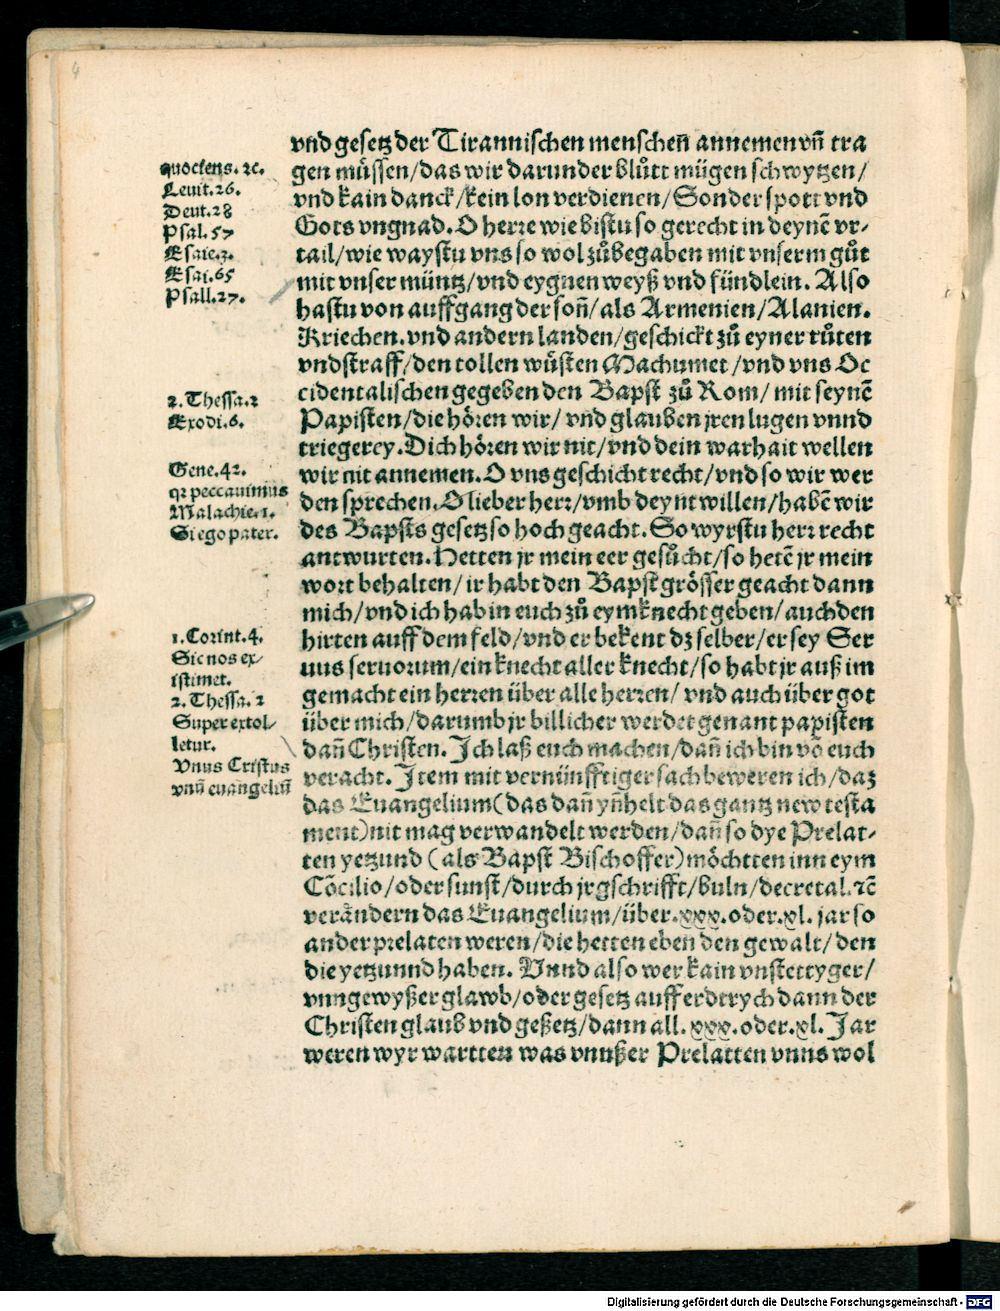 4
vnd gesetz der Tirannischen menschen̄ annemen vn̄ tra
gen müssen/das wir darunder blůtt mügen schwytzen/
vnd kain danck/kein lon verdienen/Sonder spott vnd
Gots vngnad. O herre wie bistu so gerecht in deynē vr-
tail/wie waystu vns so wol zůbegaben mit vnserm gůt
mit vnser müntz/vnd eygnen weyß vnd fündlein. Also
hastu von auffgang der son̄/als Armenien/Alanien.
Kriechen. vnd andern landen/geschickt zů eyner růten
vnd straff/den tollen wüsten Machumet/vnd vns Oc
cidentalischen gegeben den Bapst zů Rom/mit seynē
Papisten/die hören wir/vnd glauben jren lugen vnnd
triegerey. Dich hören wir nit/vnd dein warhait wellen
wir nit annemen. O vns geschicht recht/vnd so wir wer
den sprechen. O lieber herr/vmb deynt willen/habē wir
des Bapsts gesetz so hoch geacht. So wyrstu herr recht
antwurten. Hetten jr mein eer gesůcht/so hetē jr mein
wort behalten/ir habt den Bapst grösser geacht dann
mich/vnd ich hab in euch zů eym knecht geben/auch den
hirten auff dem feld/vnd er bekent dz selber/er sey Ser
uus seruorum/ein knecht aller knecht/so habt jr auß im
gemacht ein herren über alle herren/vnd auch über got
über mich/darumb jr billicher werdet genant papisten
dan̄ Christen. Ich laß euch machen/dan̄ ich bin vō euch
veracht. Item mit vernünfftiger sach beweren ich/daz
das Euangelium(das dan̄ yn̄helt das gantz new testa
ment)nit mag verwandelt werden/dan̄ so dye Prelat-
ten yetzund (als Bapst Bischoffer)möchtten inn eym
Cōcilio/oder sunst/durch jr gschrifft/buln/decretal.ꝛc̄
verändern das Euangelium/über.xxx.oder.xl. jar so
ander prelaten weren/die hetten eben den gewalt/den
die yetzunnd haben. Vnnd also wer kain vnstettyger/
vnngewyßer glawb/oder gesetz auff erdtrych dann der
Christen glaub vnd geßetz/dann all.xxx.oder.xl. Jar
weren wyr wartten was vnnßer Prelatten vnns wol
quociens. ꝛc.
Leuit. 26.
Deut. 28
Psal. 57
Esaie. 3.
Esai. 65
Psall. 27.
2. Thessa. 2
Exodi. 6.
Gene. 42.
qꝛ peccauimus
Malachie. 1.
Si ego pater.
1. Corint. 4.
Sic nos ex-
istimet.
2. Thessa. 2
Super extol-
letur.
Vnus Cristus
vnū euangeliū
Digitalisierung gefördert durch die Deutsche Forschungsgemeinschaft - DFG